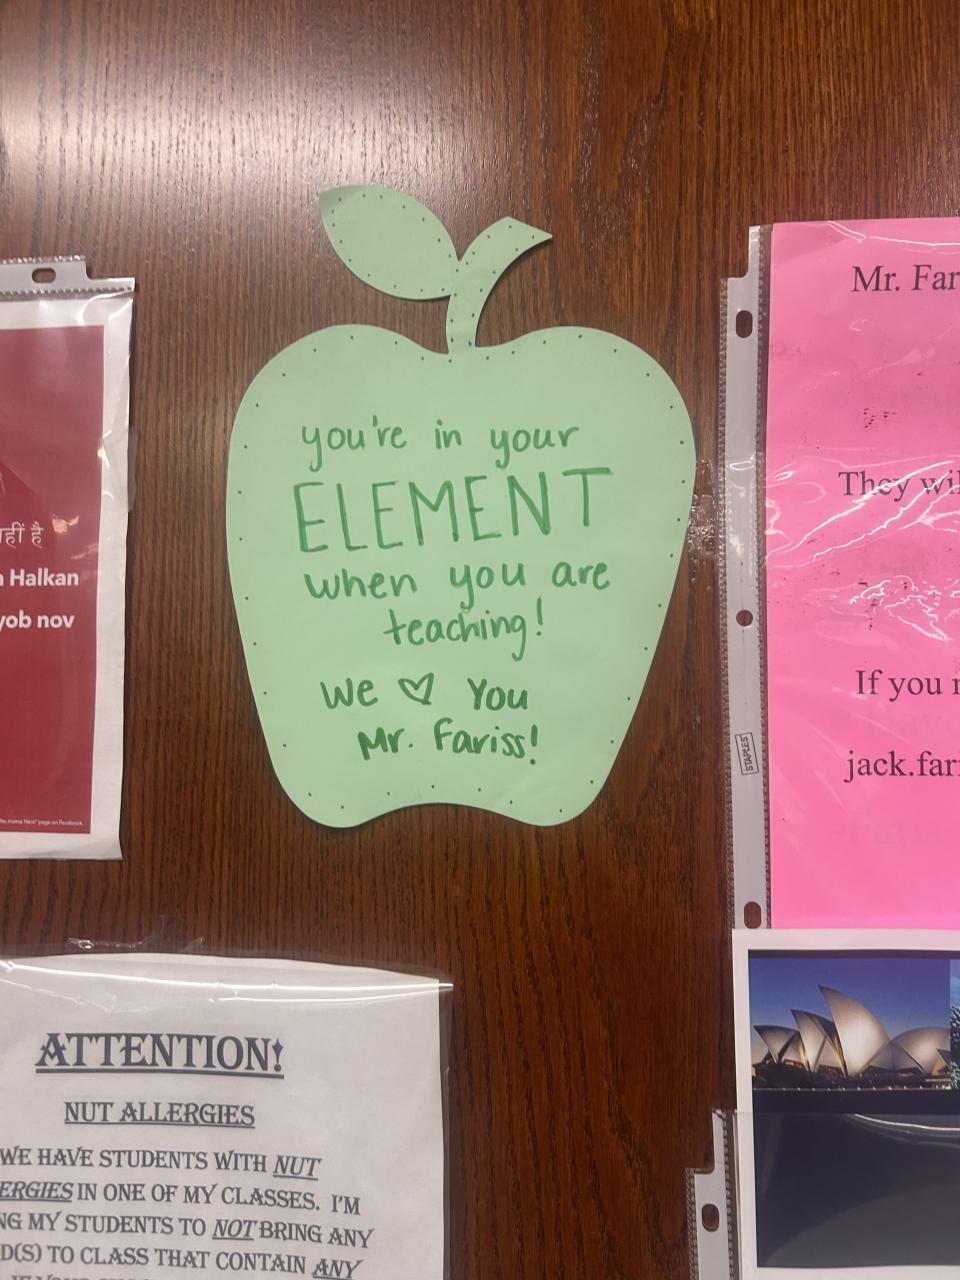 you're in your
ELEMENT
when you are
teaching!
We ♡ You
Mr. Fariss!
हीं है
Halkan
yob nov
No Home Here" page on Facebook.
Mr. Far
They wil
If you
jack.fari
STAPLES
ATTENTION!
NUT ALLERGIES
WE HAVE STUDENTS WITH NUT
ERGIES IN ONE OF MY CLASSES. I'M
NG MY STUDENTS TO NOT BRING ANY
D(S) TO CLASS THAT CONTAIN ANY